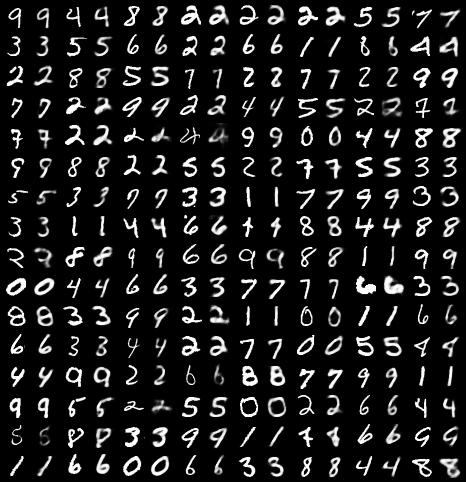 9 9 4 4 8 8 2 2 2 2 2 2 5 5 7 7
3 3 5 5 6 6 2 2 6 6 1 1 8 8 4 4
2 2 8 8 5 5 7 7 2 2 7 7 2 2 9 9
7 7 2 2 9 9 2 2 4 4 5 5 2 2 7 7
7 7 2 2 2 2 4 4 9 9 0 0 4 4 8 8
9 9 8 8 2 2 5 5 2 2 7 7 5 5 3 3
5 5 3 3 7 7 3 3 1 1 7 7 9 9 3 3
3 3 1 1 4 4 6 6 4 4 8 8 4 4 8 8
2 2 8 8 9 9 6 6 9 9 8 8 1 1 9 9
0 0 4 4 6 6 3 3 7 7 7 7 6 6 3 3
8 8 3 3 9 9 2 2 1 1 0 0 1 1 6 6
6 6 3 3 4 4 2 2 7 7 0 0 5 5 4 4
4 4 9 9 2 2 6 6 8 8 7 7 9 9 1 1
9 9 5 5 2 2 5 5 0 0 2 2 6 6 4 4
5 5 8 8 3 3 9 9 1 1 4 4 6 6 9 9
1 1 6 6 0 0 6 6 3 3 8 8 4 4 8 8